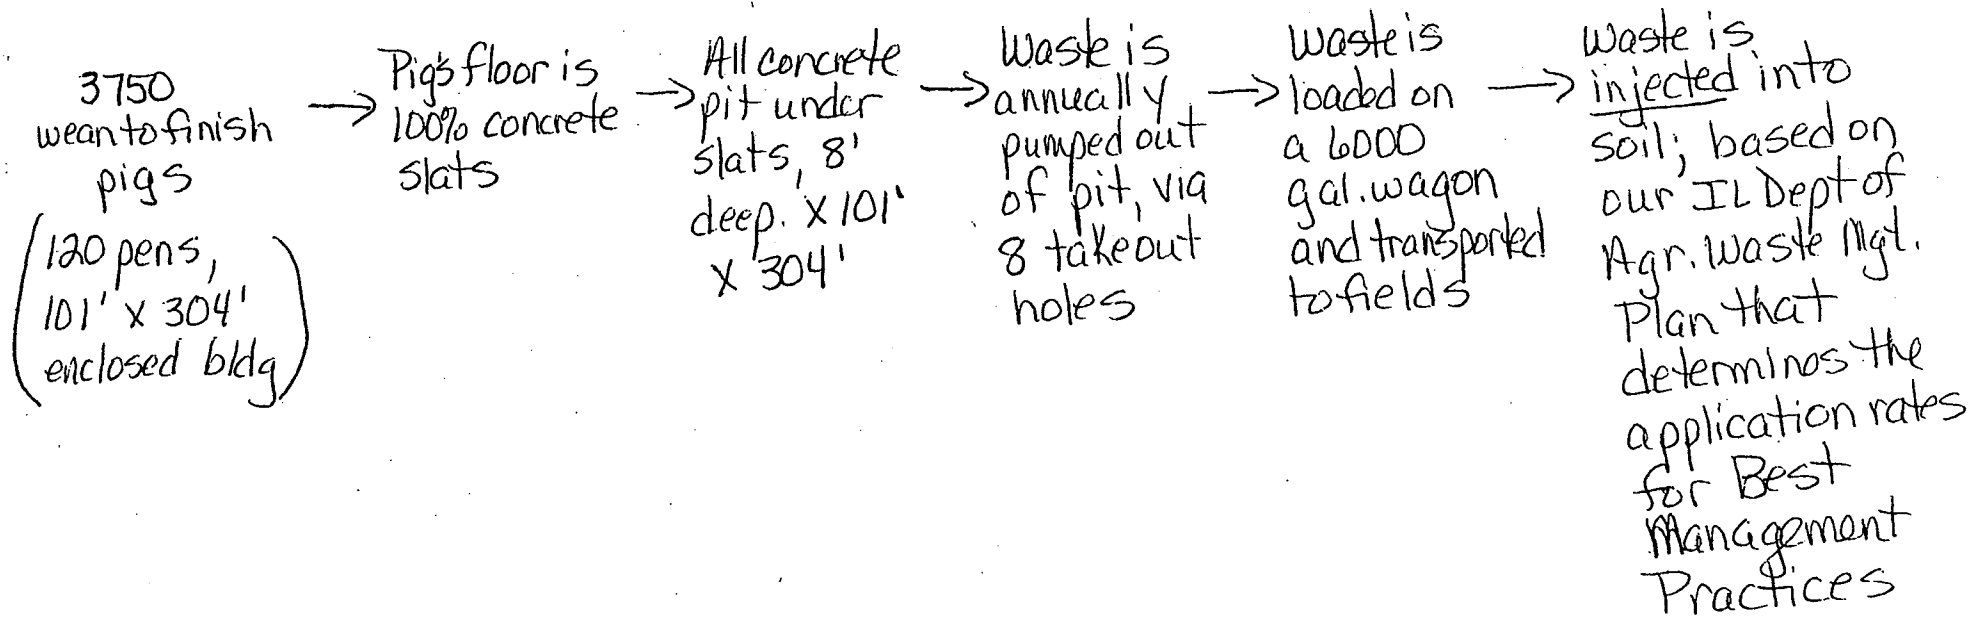 3750
wean to finish
pigs
(120 pens,
101' X 304'
enclosed bldg)
→ Pig's floor is
100% concrete
slats
→ All concrete
pit under
slats, 8'
deep. X 101'
X 304'
→ Waste is
annually
pumped out
of pit, via
8 takeout
holes
→ Waste is
loaded on
a 6000
gal. wagon
and transported
to fields
→ Waste is
injected into
soil; based on
our IL Dept of
Agr. Waste Mgt.
Plan that
determines the
application rates
for Best
Management
Practices